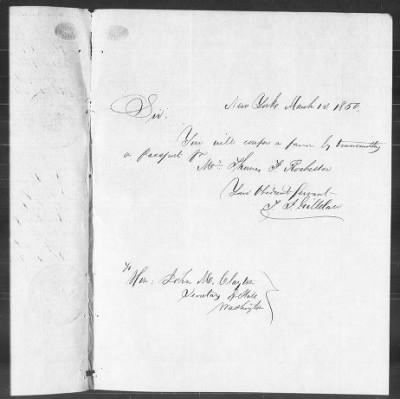 New York March 12 1850.
Sir.
You will confer a favor by transmitting
a passport for
Mr. Thomas F. Rochester
Your Obedient Servant
To
Hon: John M. Clayton
Secretary of State
Washington